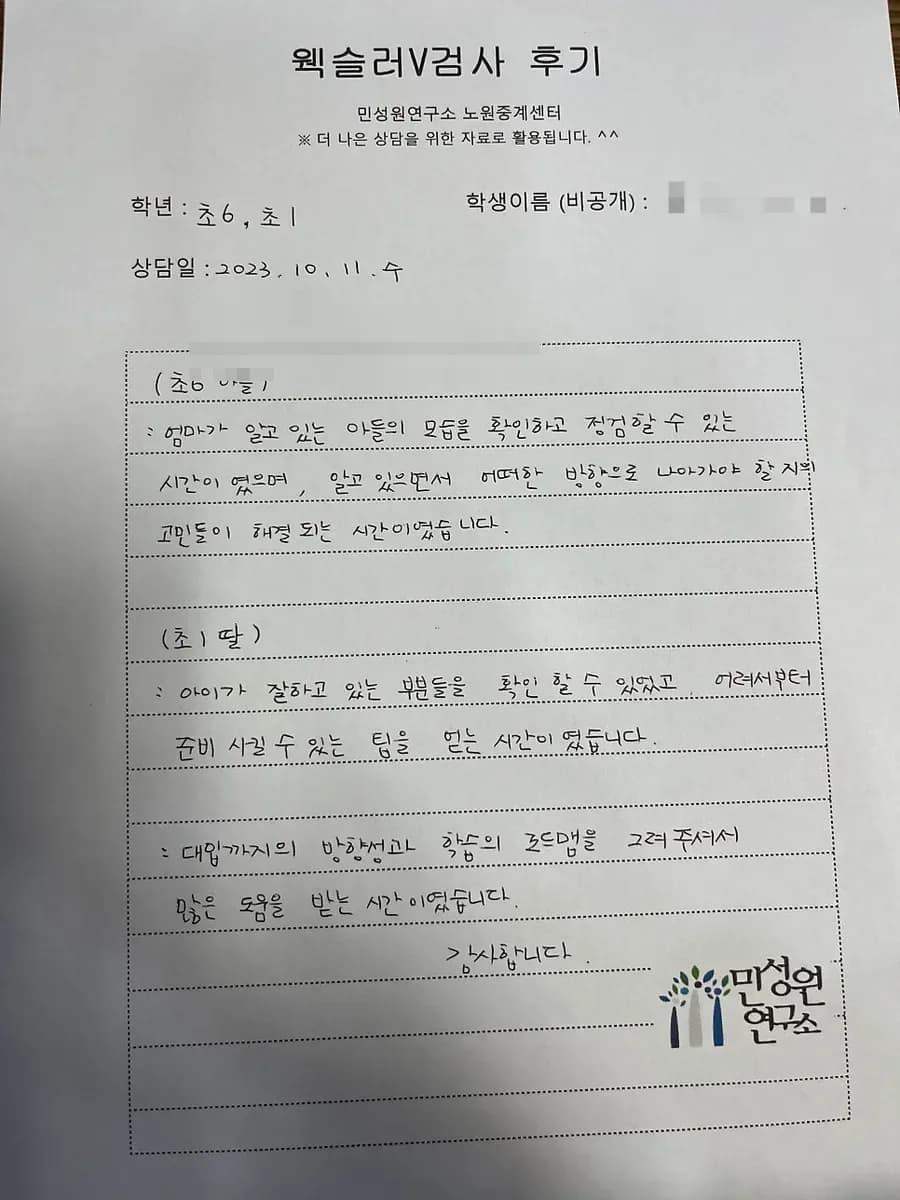 웩슬러V검사 후기
민성원연구소 노원중계센터
※ 더 나은 상담을 위한 자료로 활용됩니다. ^^
학년 : 초6, 초1
학생이름 (비공개) :
상담일 : 2023. 10. 11. 수
(초6 아들)
: 엄마가 알고 있는 아들의 모습을 확인하고 점검할 수 있는
시간이 였으며, 알고 있으면서 어떠한 방향으로 나아가야 할 지의
고민들이 해결 되는 시간이였습니다.
(초1 딸)
: 아이가 잘하고 있는 부분들을 확인 할 수 있었고, 어려서부터
준비 시킬 수 있는 팁을 얻는 시간이 였습니다.
: 대입까지의 방향성과 학습의 로드맵을 그려 주셔서
많은 도움을 받는 시간 이였습니다.
감사합니다.
민성원
연구소